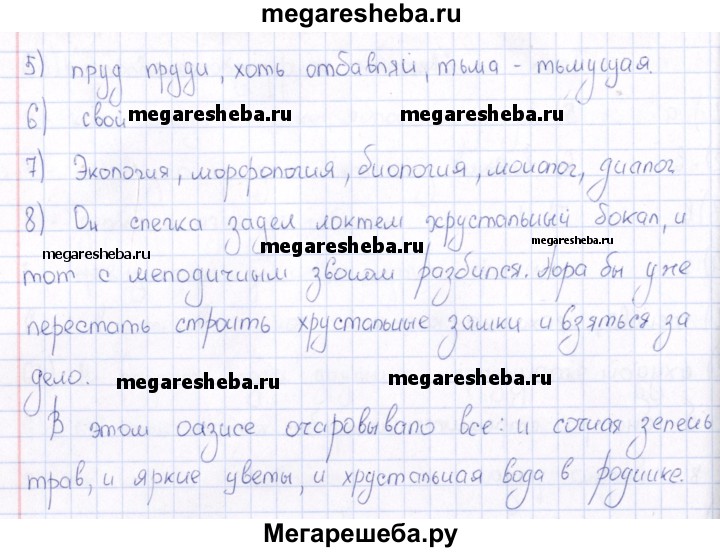 megaresheba.ru
5) пруд пруди, хоть отбавляй, тьма - тьмущая.
6) свой
megaresheba.ru megaresheba.ru
7) Экология, морфология, биология, монолог, диалог
8) Он слегка задел локтем хрустальный бокал, и
megaresheba.ru megaresheba.ru megaresheba.ru
тот с мелодичным звоном разбился. Пора бы уже
перестать строить хрустальные замки и взяться за
дело.
megaresheba.ru megaresheba.ru
В этом оазисе очаровывало все: и сочная зелень
трав, и яркие цветы, и хрустальная вода в роднике.
Мегарешеба.ру